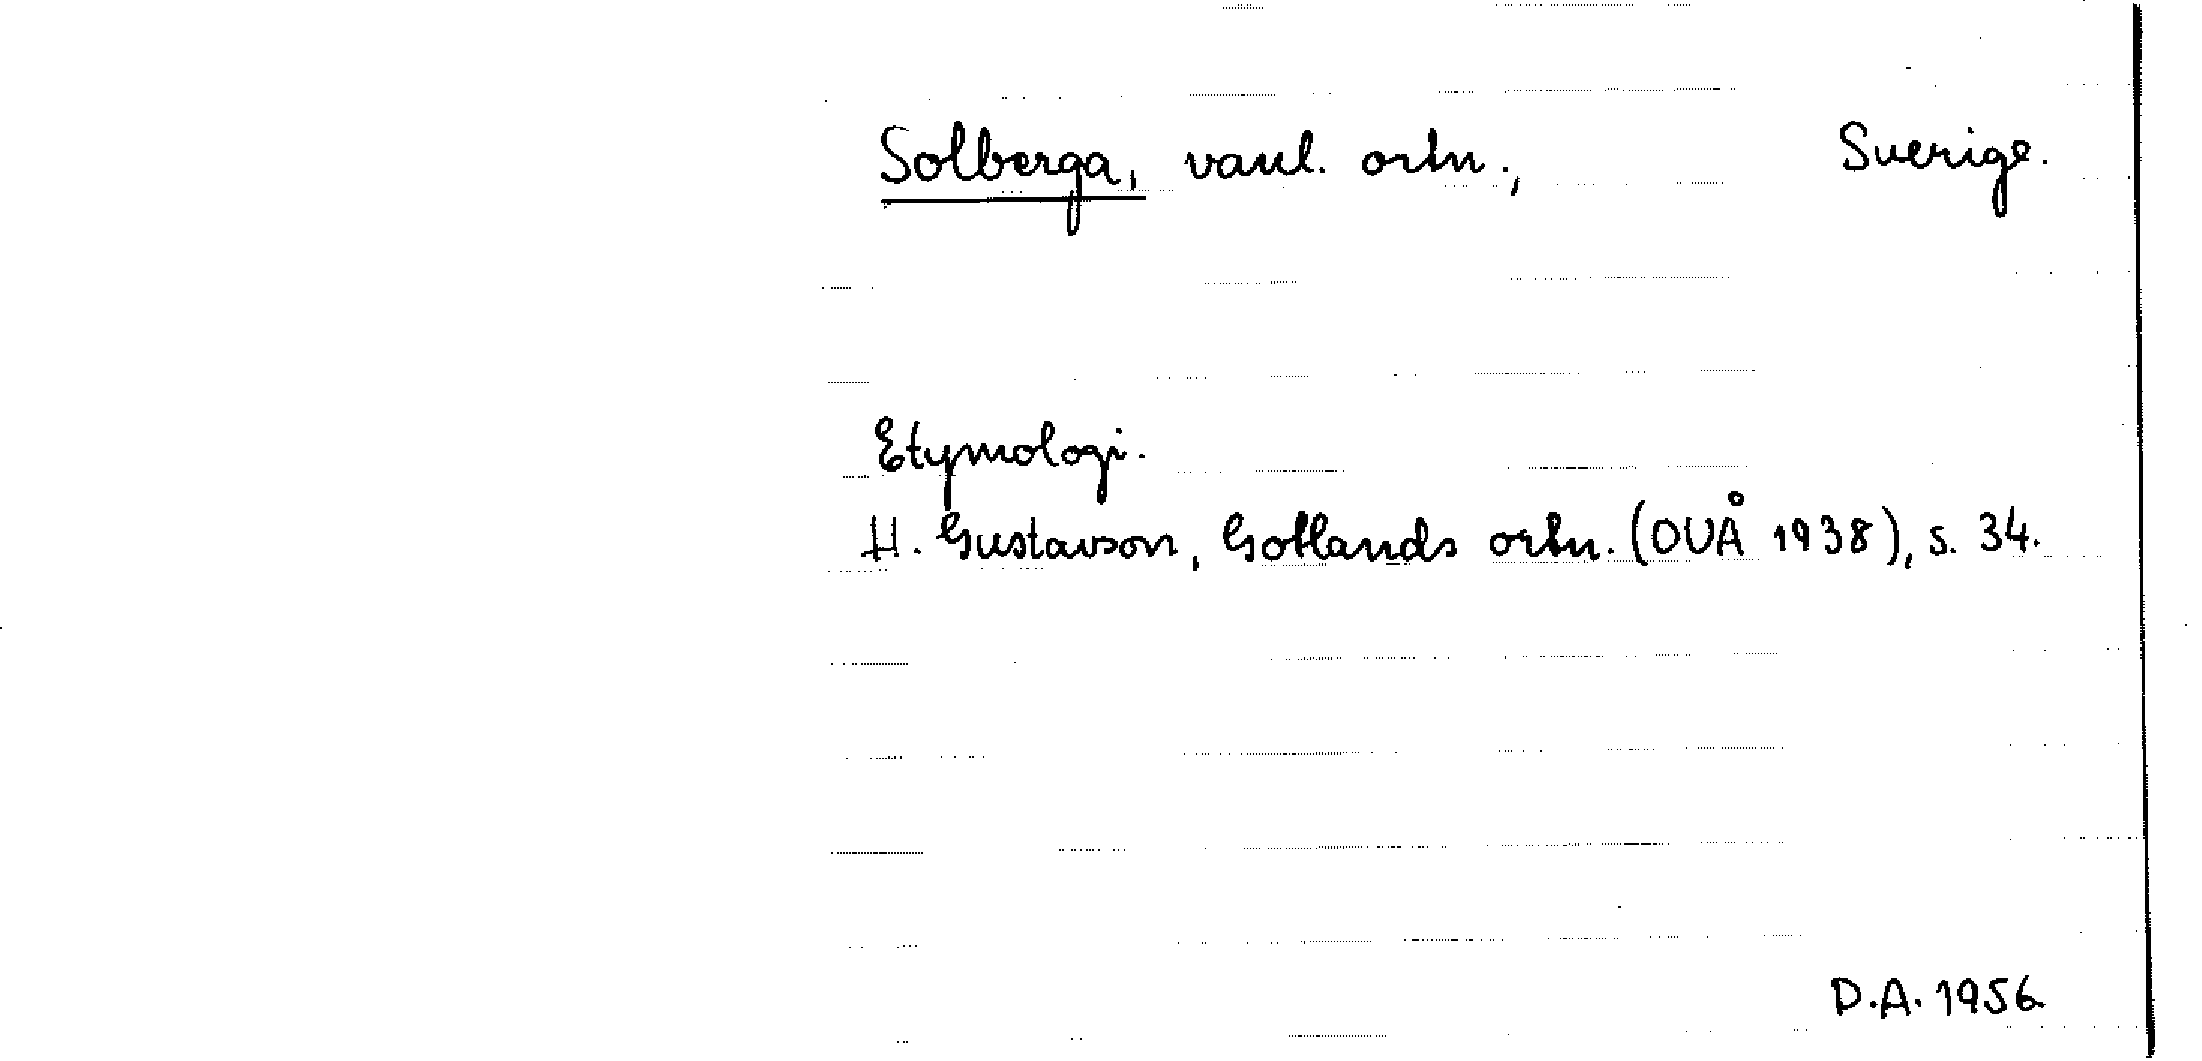 Solberga, vanl. ortn., Sverige.
Etymologi.
H. Gustavson, Gotlands ortn. (OUÅ 1938), s. 34.
D.A. 1956